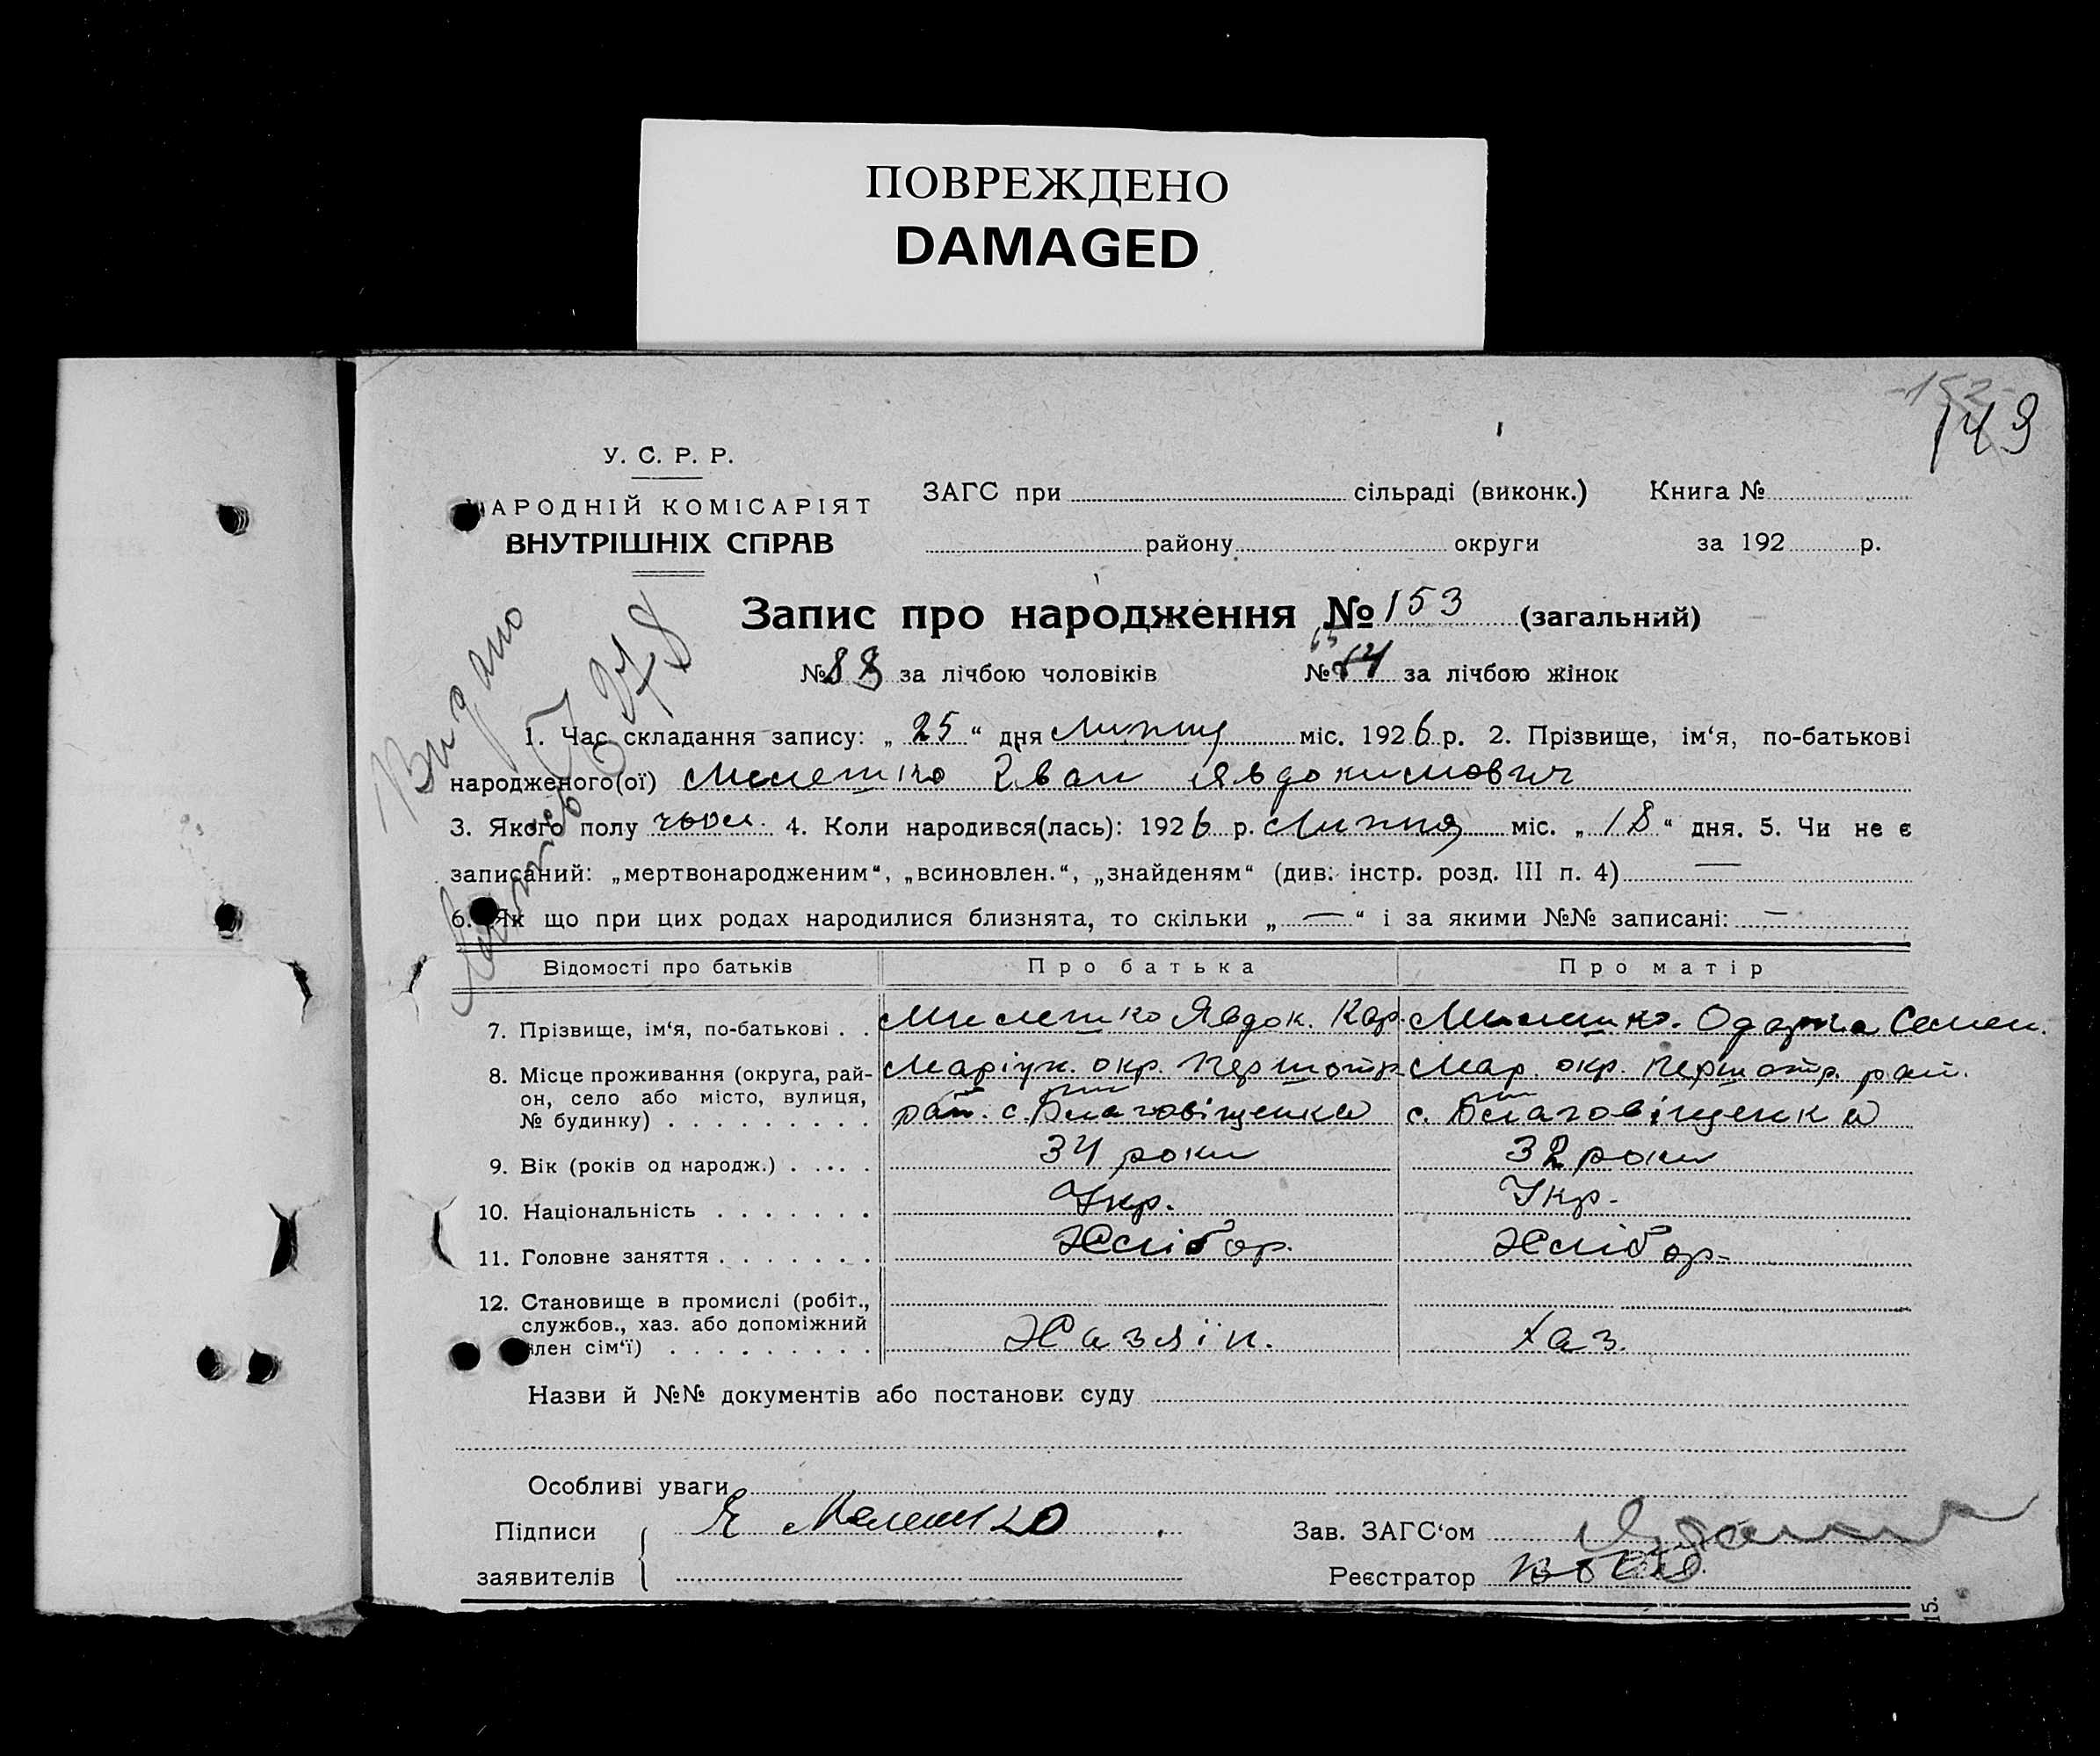 ПОВРЕЖДЕНО
DAMAGED
-152-
149
У. С. Р. Р.
НАРОДНІЙ КОМІСАРІЯТ
ВНУТРІШНІХ СПРАВ
ЗАГС при сільраді (виконк.) Книга №
району округи за 192 р.
Запис про народження № 153 (загальний)
№ 88 за лічбою чоловіків № 65 за лічбою жінок
Видано
1. Час складання запису: „ 25 “ дня Липня міс. 1926 р. 2. Прізвище, ім‘я, по-батькові
народженого(ої) Милешко Іван Явдокимович
3. Якого полу чолов. 4. Коли народився(лась): 1926 р. Липня міс. „ 18 “ дня. 5. Чи не є
записаний: „мертвонародженим“, „всиновлен.“, „знайденям“ (див: інстр. розд. III п. 4) —
6. Як що при цих родах народилися близнята, то скільки „ — “ і за якими №№ записані: —
Відомості про батьків Про батька Про матір
7. Прізвище, ім‘я, по-батькові . . Милешко Явдок. Кар. Милешко. Одарка Семен.
8. Місце проживання (округа, рай- Маріуп. окр. Першотр. Мар. окр. Першотр. рай.
он, село або місто, вулиця, рай. с. Благовіщенка с. Благовіщенка
№ будинку) . . . . . . . . .
9. Вік (років од народж.) . . . . . 34 роки 32 роки
10. Національність . . . . . . . Укр. Укр.
11. Головне заняття . . . . . . . Хлібор. Хлібор.
12. Становище в промислі (робіт.,
службов., хаз. або допоміжний
член сім‘ї) . . . . . . . . . Хазяїн. Хаз.
Назви й №№ документів або постанови суду
Особливі уваги
Підписи Зав. ЗАГС‘ом
заявителів Реєстратор
15.